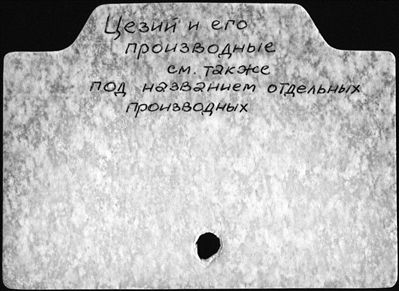 Цезий и его
производные
см. также
под названием отдельных
производных